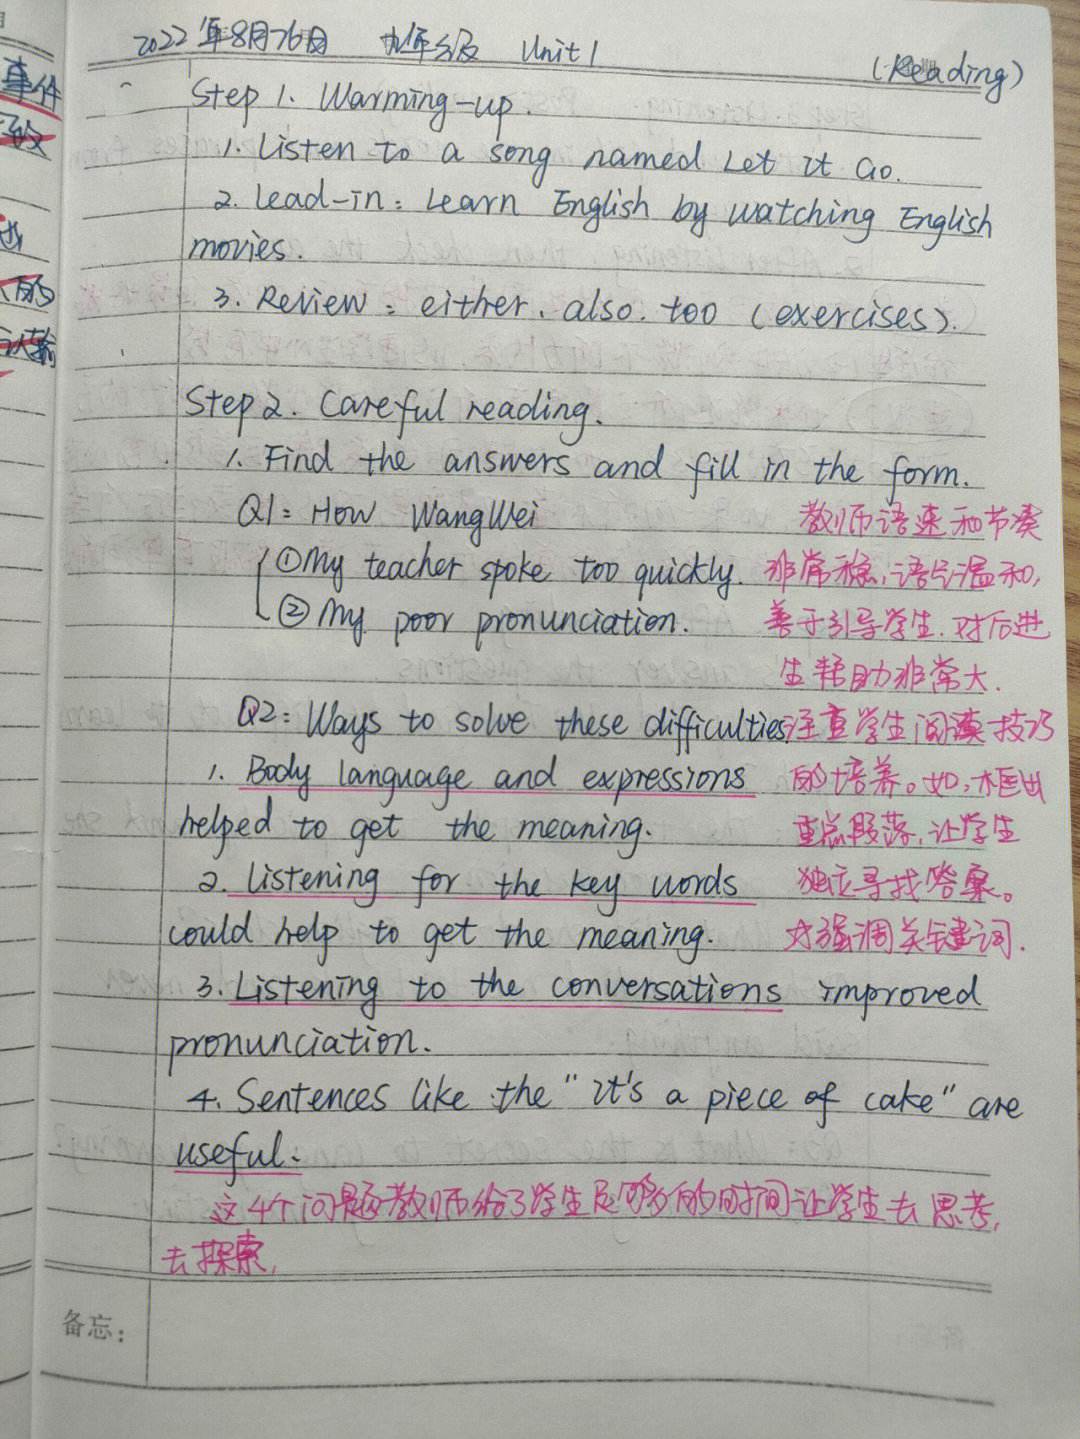 2022年8月26日 九年级 Unit 1
(Reading)
Step 1. Warming-up.
1. Listen to a song named Let it Go.
2. Lead-in: Learn English by watching English
movies.
3. Review: either, also, too (exercises).
Step 2. Careful reading.
1. Find the answers and fill in the form.
Q1: How WangWei
①My teacher spoke too quickly.
②My poor pronunciation.
Q2: Ways to solve these difficulties
1. Body language and expressions
helped to get the meaning.
2. Listening for the key words
could help to get the meaning.
3. Listening to the conversations improved
pronunciation.
4. Sentences like the "It's a piece of cake" are
useful.
教师语速和节奏
非常稳,语气温和,
善于引导学生.对后进
生帮助非常大.
注重学生阅读技巧
的培养。如,框出
重点段落,让学生
独立寻找答案。
强调关键词.
这4个问题教师给了学生足够的时间让学生去思考,
去探索,
备忘:
事件
的